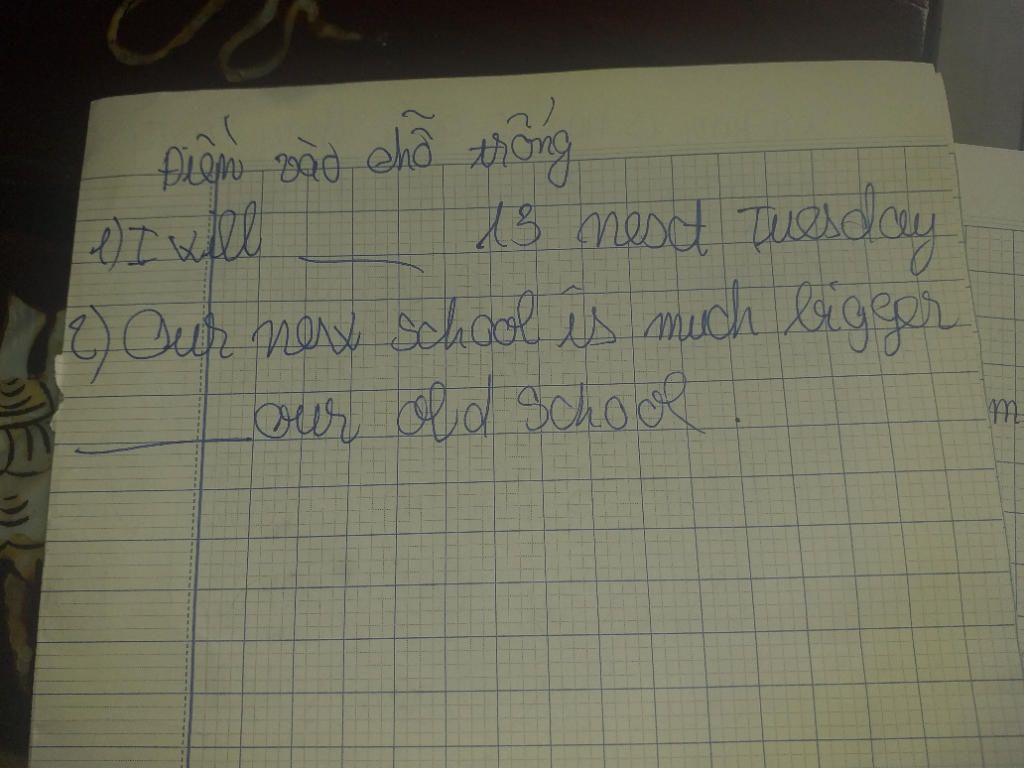 Điền vào chỗ trống
1) I will ____ 13 next Tuesday
2) Our new school is much bigger
____ our old school.
m